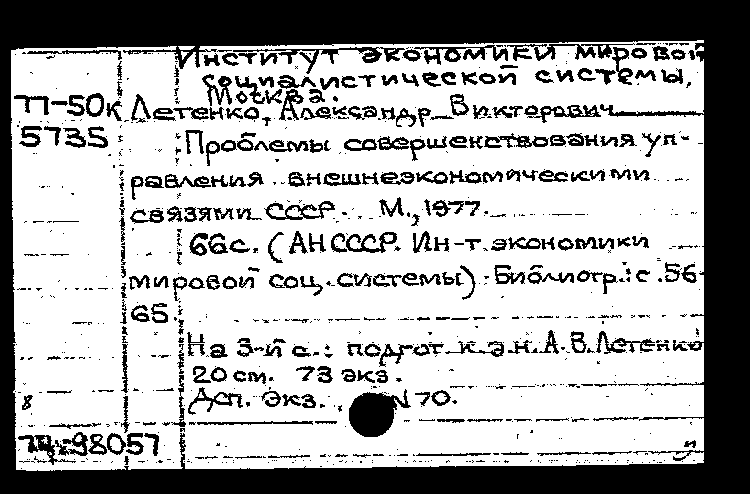 Институт экономики мировой
социалистической системы,
Москва.
77-50к Летенко, Александр Викторович
5735 Проблемы совершенствования уп-
равления внешнеэкономическими
связями СССР. М., 1977.
66с. (АН СССР. Ин-т экономики
мировой соц. системы) Библиогр.: с. 56-
65.
На 3-й с.: подгот. к.э.н. А.В. Летенко
20 см. 73 экз.
8 Деп. экз. N 70.
98057